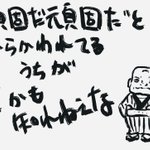 頑固だ頑固だと
からかわれてる
うちが
かも
知れねえな